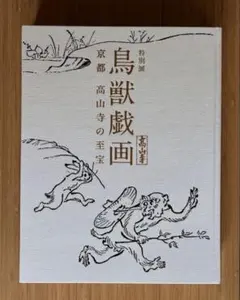 特別展
鳥獣戯画
京都 高山寺の至宝
高山寺